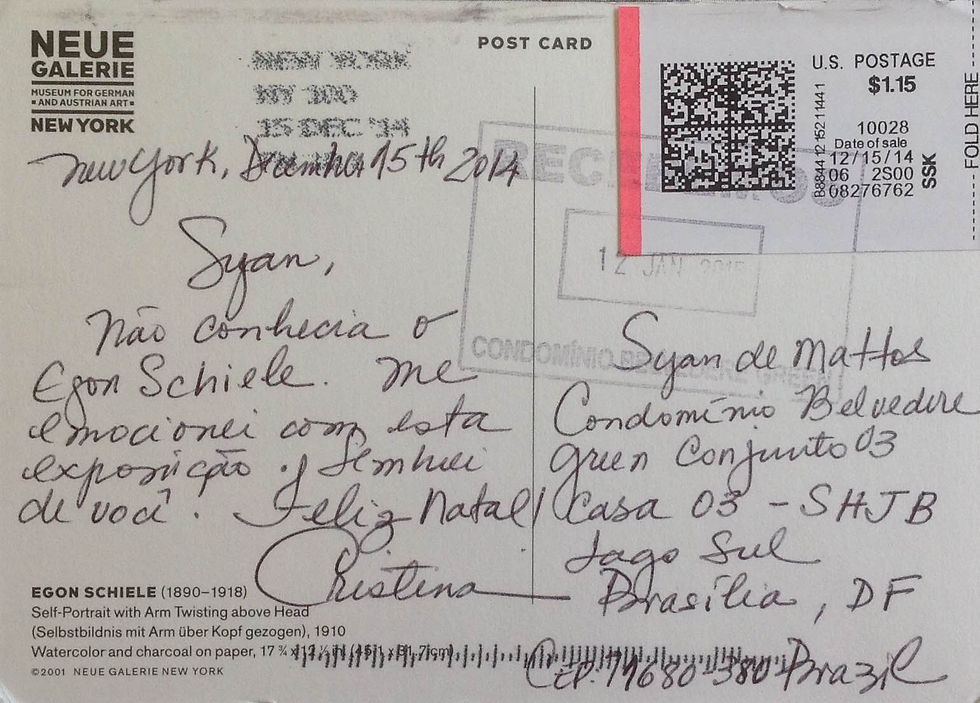 NEUE
GALERIE
MUSEUM FOR GERMAN
AND AUSTRIAN ART
NEW YORK
NEW YORK
NY 100
15 DEC '14
POST CARD
U.S. POSTAGE
$1.15
10028
Date of sale
12/15/14
06 2S00
08276762
SSK
FOLD HERE
New York, December 15th 2014
Syan,
Não conhecia o
Egon Schiele. Me
emocionei com esta
exposição. lembrei
de você. Feliz Natal!
Cristina
12 JAN 2015
Syan de Mattos
Condomínio Belvedere
Green Conjunto 03
Casa 03 - SHJB
Lago Sul
Brasília, DF
CEP. 71680-380 Brazil
EGON SCHIELE (1890–1918)
Self-Portrait with Arm Twisting above Head
(Selbstbildnis mit Arm über Kopf gezogen), 1910
Watercolor and charcoal on paper, 17 ¾ x
©2001 NEUE GALERIE NEW YORK
CONDOMÍNIO BELVEDERE GREEN